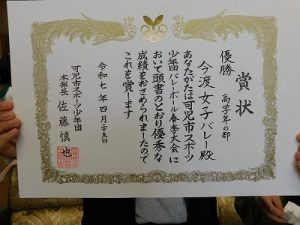 賞状
優勝
高学年の部
今渡女子バレー殿
あなたがたは可児市スポーツ
少年団バレーボール春季大会に
おいて頭書のとおり優秀な
成績をおさめられましたので
これを賞します
令和七年四月二十日
可児市スポーツ少年団
本部長 佐藤慎也